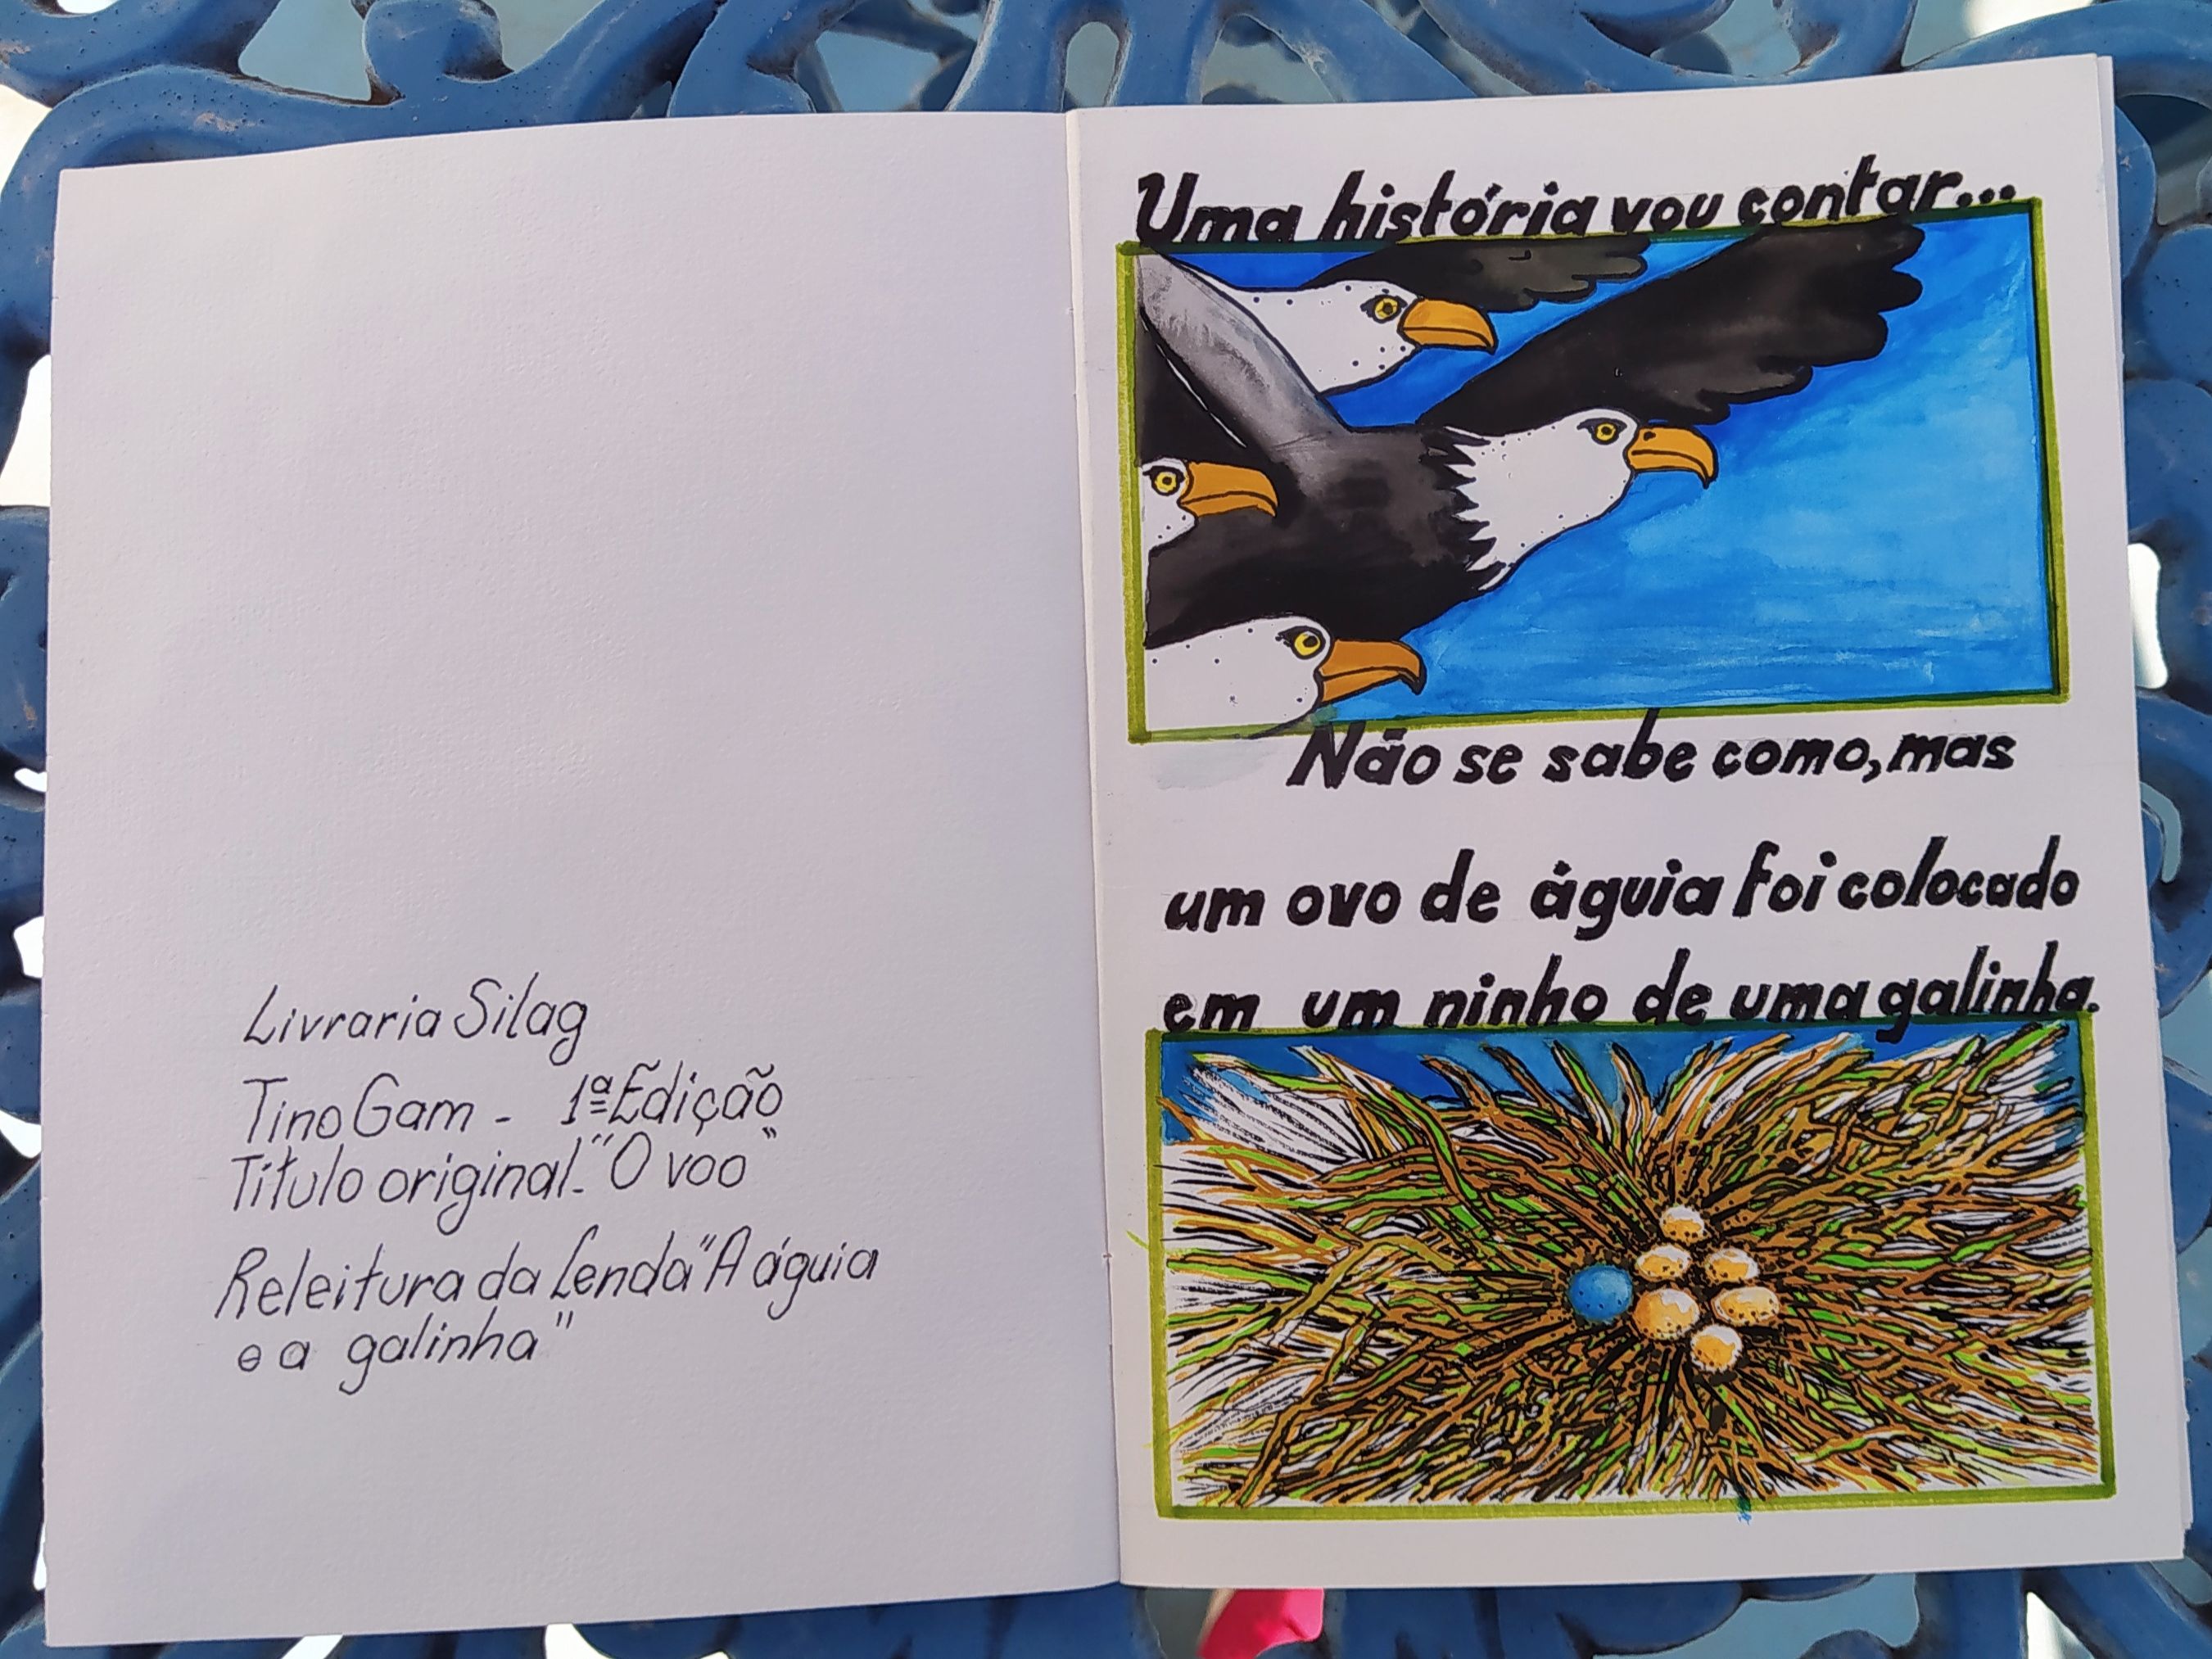 Livraria Silag
Tino Gam - 1ª Edição
Título original - "O voo"
Releitura da lenda "A águia
e a galinha"
Uma história vou contar...
Não se sabe como, mas
um ovo de águia foi colocado
em um ninho de uma galinha.